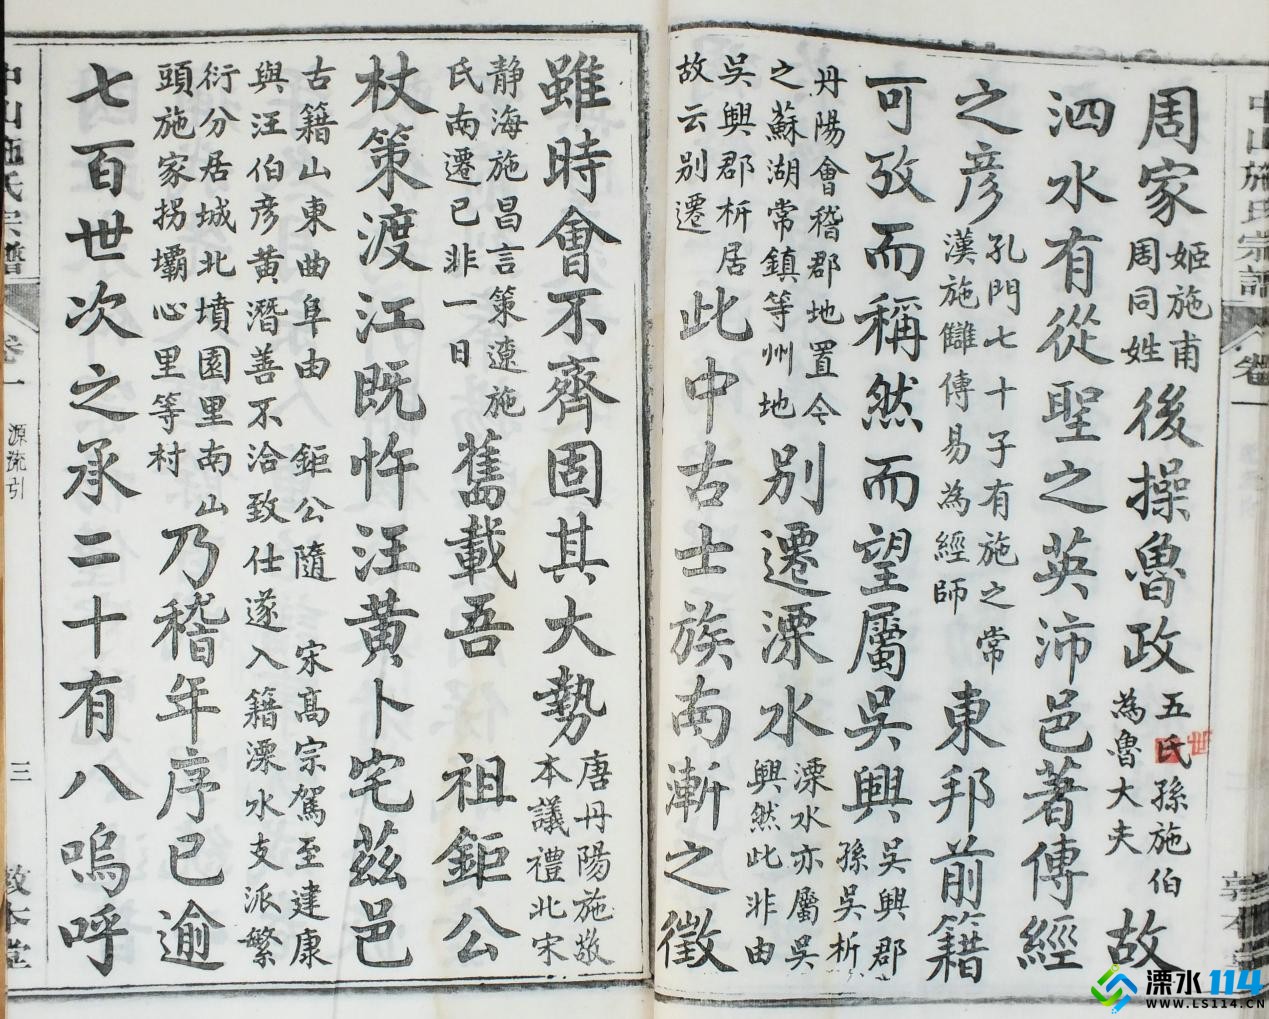 中山施氏宗譜 卷一 敦本堂
周家姬施甫周同姓後操魯政五氏孫施伯為魯大夫故
泗水有從聖之英沛邑著傳經
之彥孔門七十子有施之常漢施讎傳易為經師東邦前籍
可攷而稱然而望屬吳興吳興郡孫吳析
丹陽會稽郡地置今之蘇湖常鎮等州地別遷溧水溧水亦屬吳興然此非由
吳興郡析居故云別遷此中古士族南漸之徵
雖時會不齊固其大勢唐丹陽施敬本議禮北宋
靜海施昌言策遼施氏南遷已非一日舊載吾 祖鉅公
杖策渡江既忤汪黃卜宅茲邑
古籍山東曲阜由 鉅公隨 宋高宗駕至建康與汪伯彥黃潛善不洽致仕遂入籍溧水支派繁
衍分居城北墳園里南山頭施家拐壩心里等村乃稽年序已逾
七百世次之承二十有八嗚呼
中山施氏宗譜 卷一 源流引 三 敦本堂
溧水114
WWW.LS114.CN